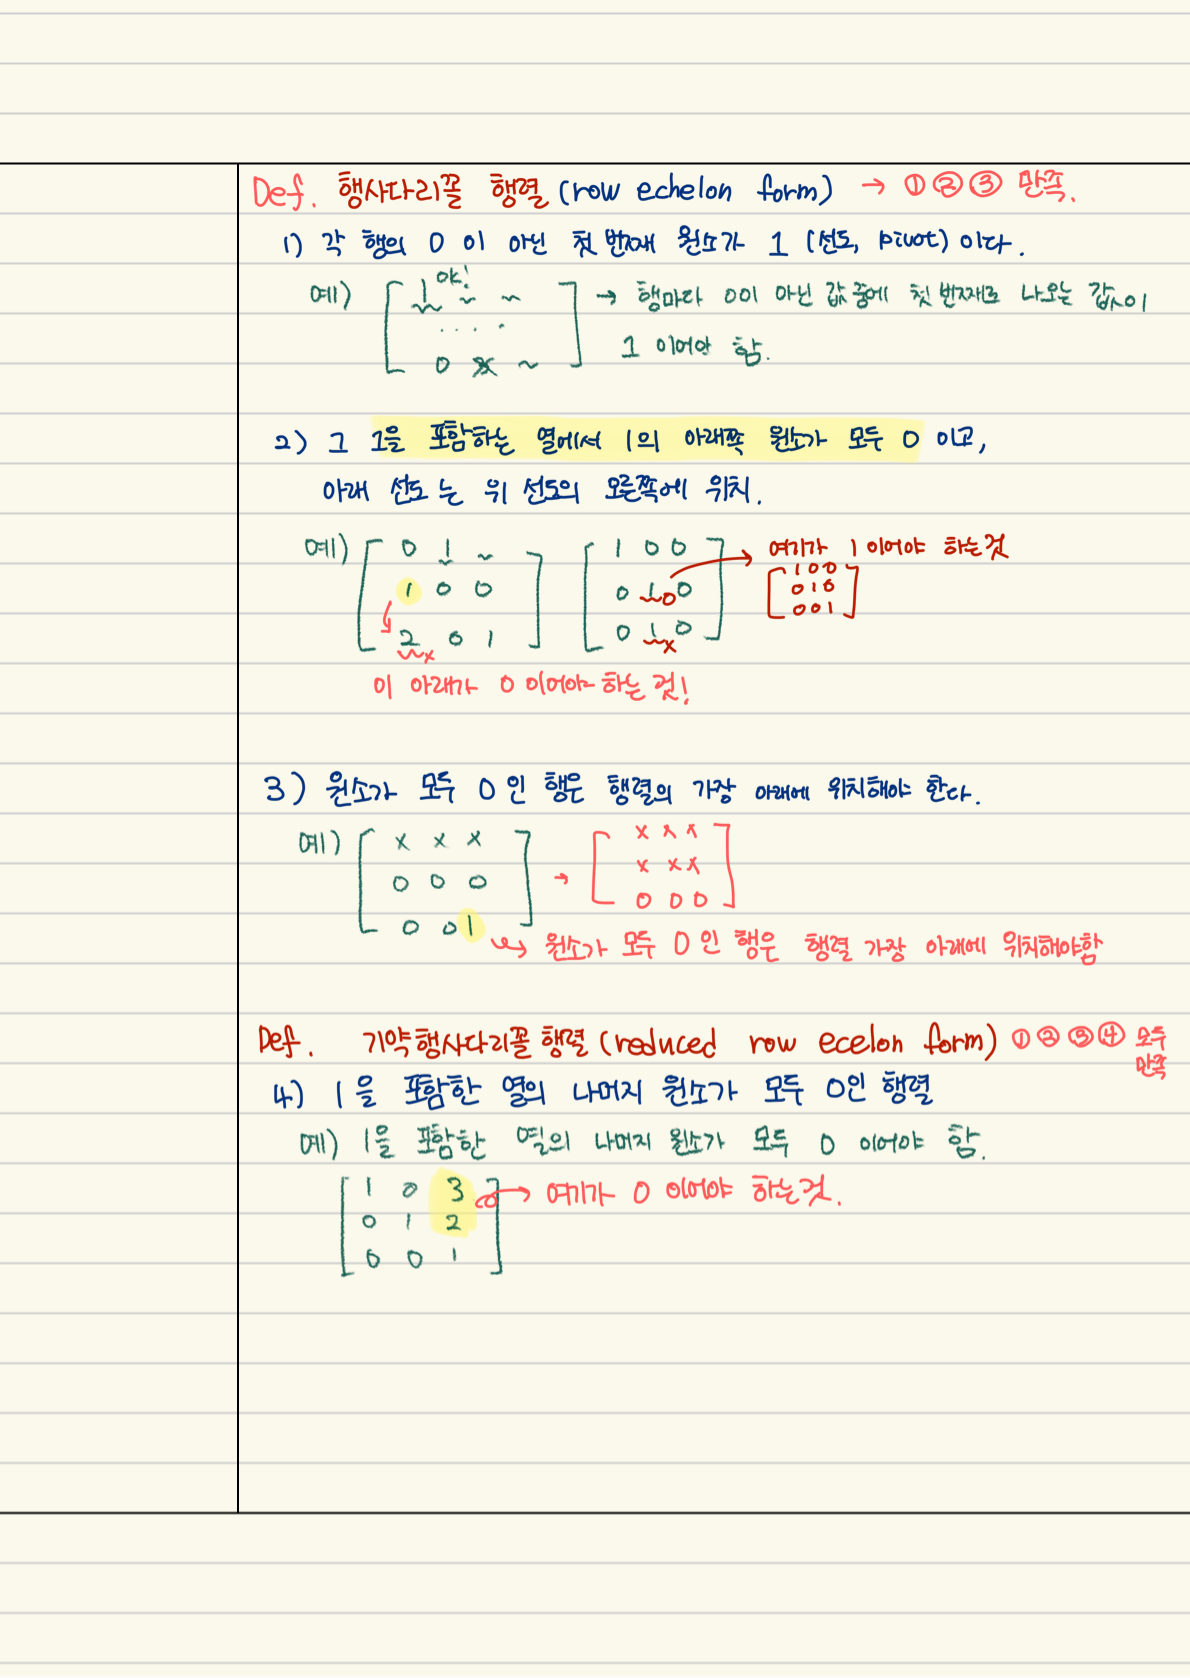 Def. 행사다리꼴 행렬 (row echelon form) → ① ② ③ 만족.
1) 각 행의 0 이 아닌 첫 번째 원소가 1 (선도, pivot) 이다.
예) [ 1 ok! ~ ~ ] → 행마다 0이 아닌 값 중에 첫 번째로 나오는 값이
. . . .
1 이어야 함.
0 x ~
2) 그 1을 포함하는 열에서 1의 아래쪽 원소가 모두 0 이고,
아래 선도는 위 선도의 오른쪽에 위치.
예) [ 0 1 ~ ] [ 1 0 0 ] → 여기가 1 이어야 하는것
1 0 0 0 1 0 0 [ 1 0 0
0 1 0
2 0 1 0 1 0 0 0 1 ]
x x
이 아래가 0 이어야 하는 것!
3) 원소가 모두 0 인 행은 행렬의 가장 아래에 위치해야 한다.
예) [ x x x ] → [ x x x
0 0 0 x x x
0 0 1 0 0 0 ]
원소가 모두 0 인 행은 행렬 가장 아래에 위치해야함
Def. 기약행사다리꼴 행렬 (reduced row ecelon form) ① ② ③ ④ 모두
만족
4) 1을 포함한 열의 나머지 원소가 모두 0인 행렬
예) 1을 포함한 열의 나머지 원소가 모두 0 이어야 함.
[ 1 0 3 → 여기가 0 이어야 하는것.
0 1 2
0 0 1 ]